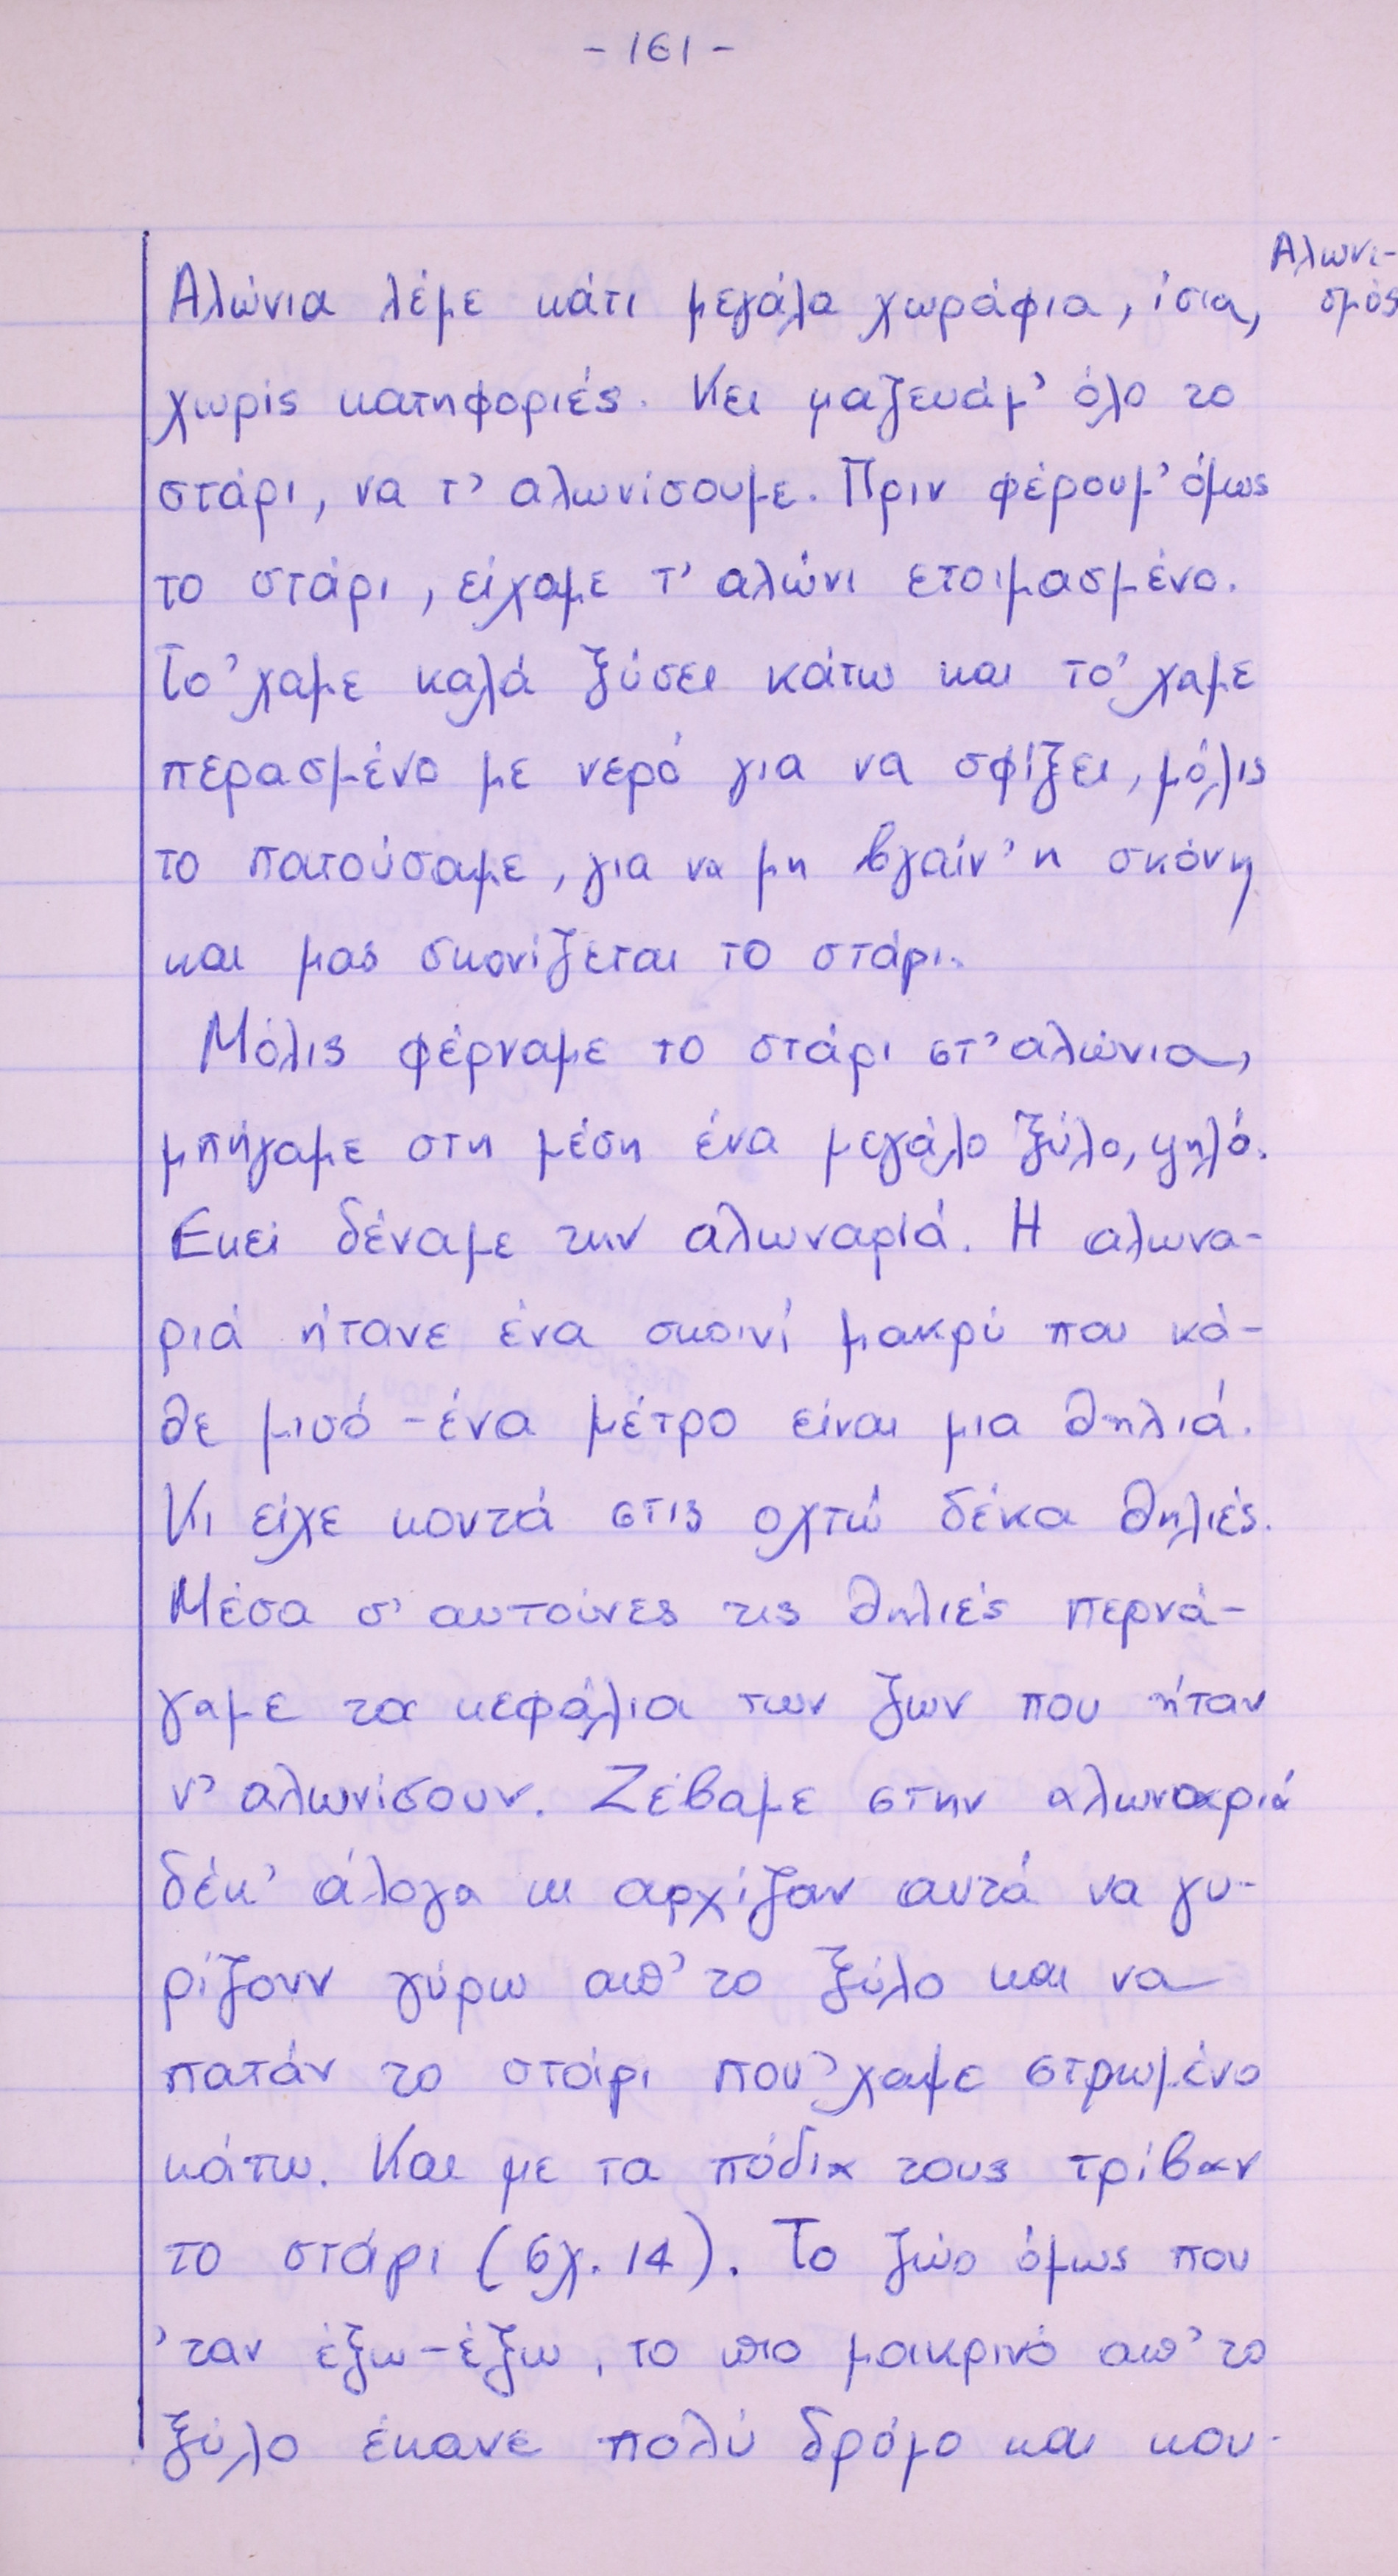 - 161 -
Αλωνι-
σμός
Αλώνια λέμε κάτι μεγάλα χωράφια, ίσια,
χωρίς κατηφοριές. Κει μαζευάμ' όλο το
στάρι, να τ' αλωνίσουμε. Πριν φέρουμ' όμως
το στάρι, είχαμε τ' αλώνι ετοιμασμένο.
Το 'χαμε καλά ξύσει κάτω και το 'χαμε
περασμένο με νερό για να σφίξει, μόλις
το πατούσαμε, για να μη βγαίν' η σκόνη
και μας σκονίζεται το στάρι.
Μόλις φέρναμε το στάρι στ' αλώνια,
μπήγαμε στη μέση ένα μεγάλο ξύλο, ψηλό.
Εκεί δέναμε την αλωναριά. Η αλωνα-
ριά ήτανε ένα σκοινί μακρύ που κά-
θε μισό - ένα μέτρο είναι μια θηλιά.
Κι είχε κοντά στις οχτώ δέκα θηλιές.
Μέσα σ' αυτούνες τις θηλιές περνά-
γαμε τα κεφάλια των ζων που ήταν
ν' αλωνίσουν. Ζέβαμε στην αλωναριά
δέκ' άλογα κι αρχίζαν αυτά να γυ-
ρίζουν γύρω απ' το ξύλο και να
πατάν το στάρι που 'χαμε στρωμένο
κάτω. Και με τα πόδια τους τρίβαν
το στάρι (σχ. 14). Το ζώο όμως που
'ταν έξω - έξω, το πιο μακρινό απ' το
ξύλο έκανε πολύ δρόμο και κου-